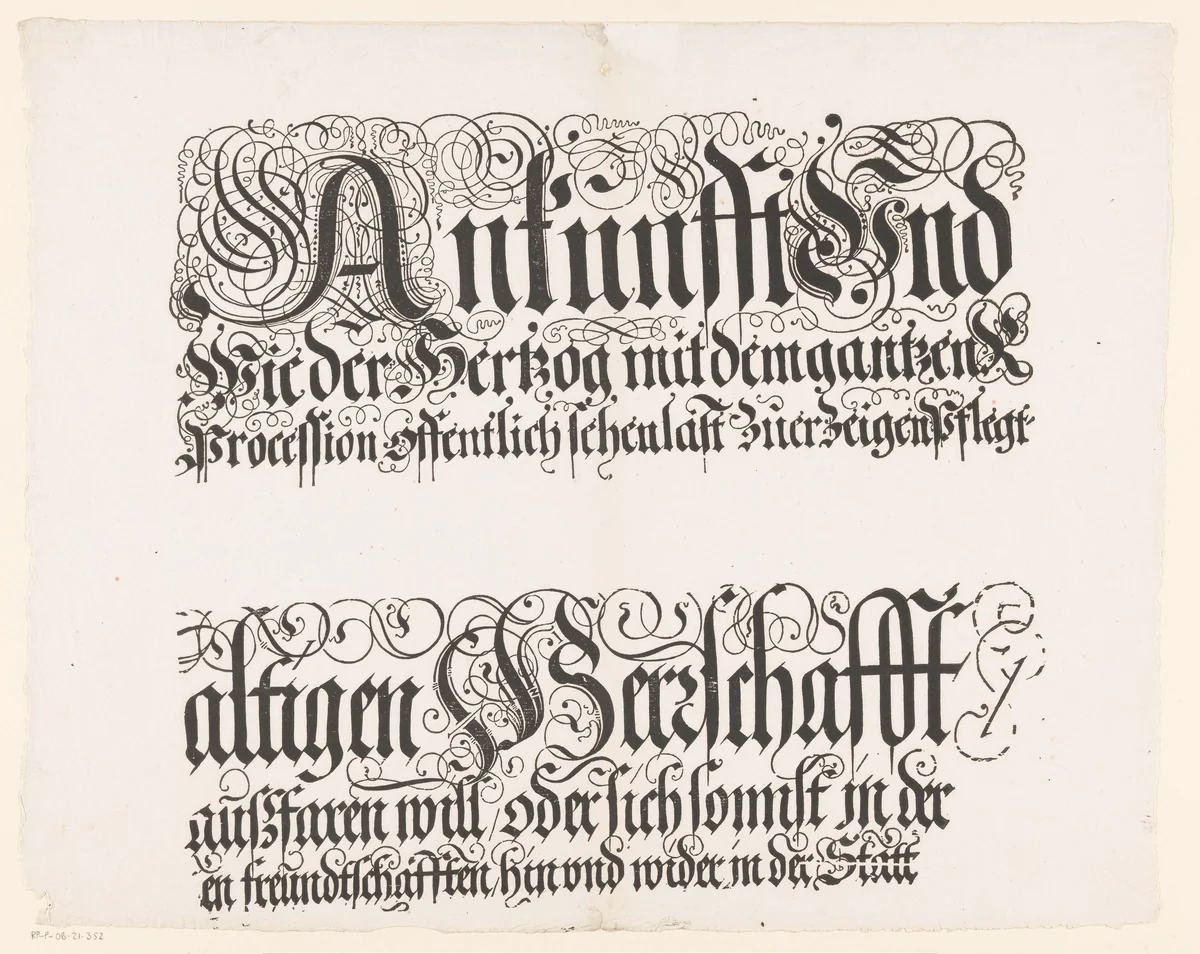 Ankunfft Vnd
Wie der Hertzog mit dem gantzen R
Procession offentlich sehen last Zuerzeigen Pflegt
altigen Herrschafft
außfaren will / oder sich sonnst in der
en freundtschafften / hin vnd wider in der Statt
RP-P-OB-21.352